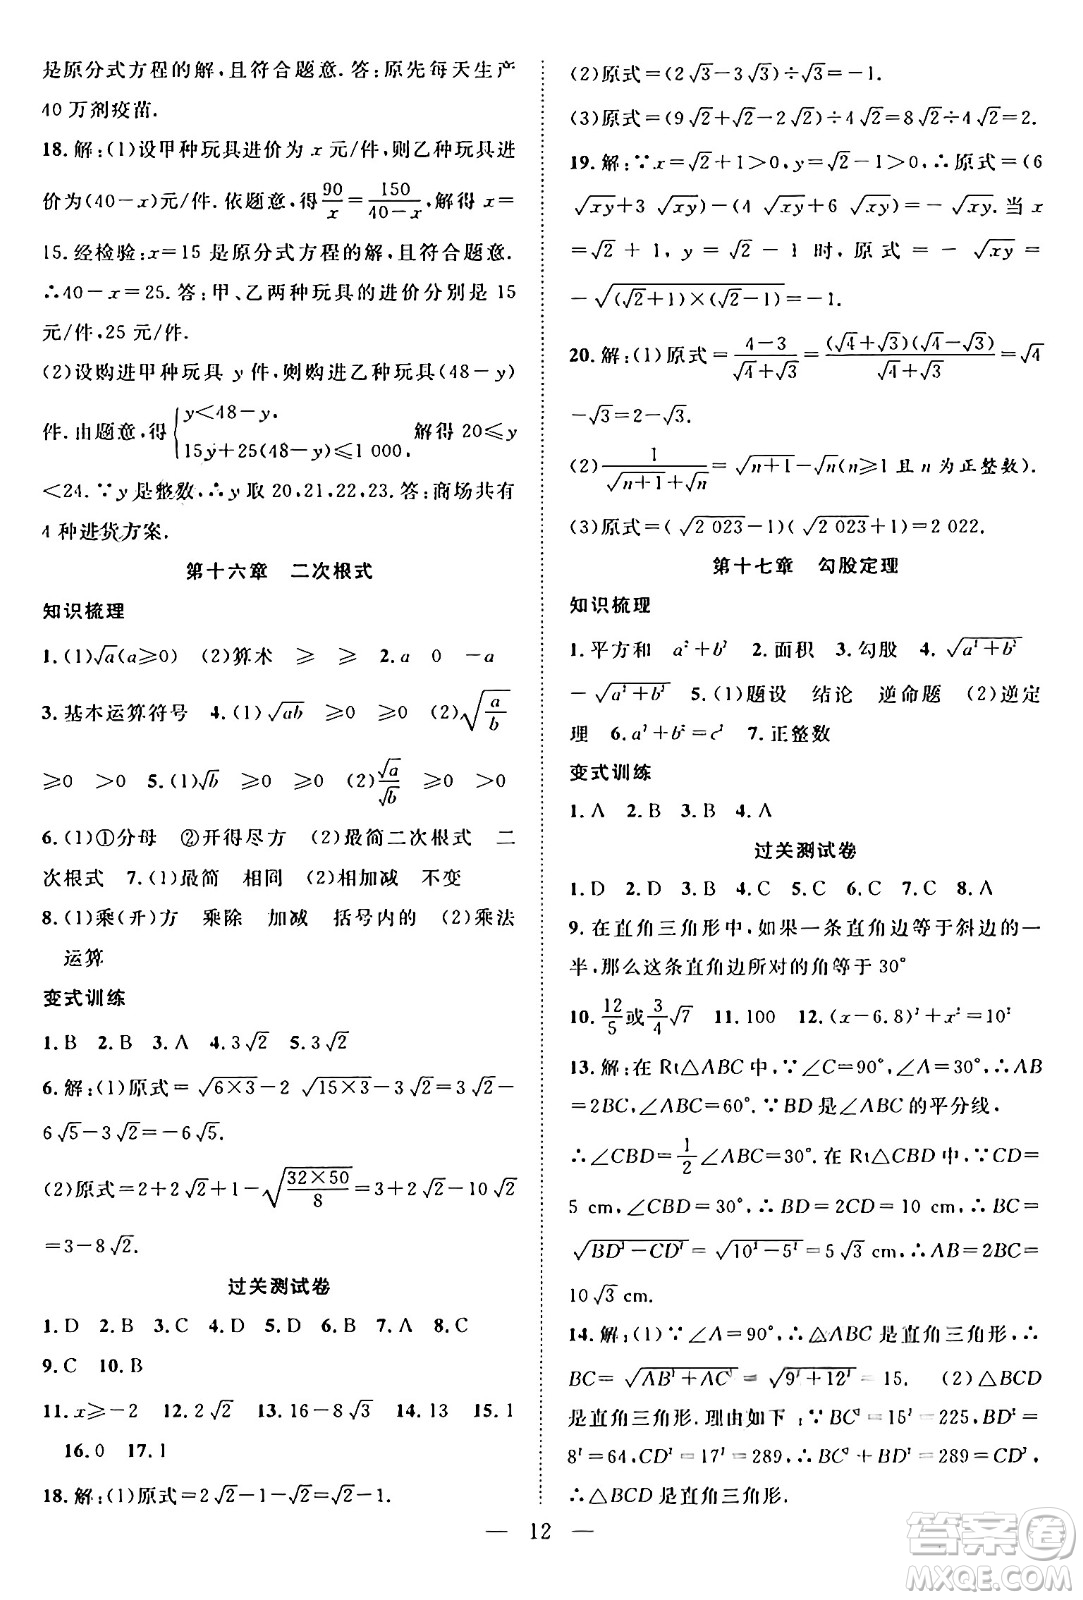 是原分式方程的解,且符合题意.答:原先每天生产
40 万剂疫苗.
18.解:(1)设甲种玩具进价为 x 元/件,则乙种玩具进
价为(40-x)元/件.依题意,得 90/x = 150/(40-x). 解得 x=
15.经检验:x=15 是原分式方程的解,且符合题意.
∴40-x=25.答:甲、乙两种玩具的进价分别是 15
元/件,25 元/件.
(2)设购进甲种玩具 y 件,则购进乙种玩具(48-y)
件.由题意,得 { y<48-y. 15y+25(48-y)≤1 000. 解得 20≤y
<24.∵y 是整数,∴y 取 20,21,22,23.答:商场共有
4 种进货方案.
第十六章 二次根式
知识梳理
1.(1)√a(a≥0) (2)算术 ≥ ≥ 2.a 0 -a
3.基本运算符号 4.(1)√ab ≥0 ≥0 (2)√(a/b)
≥0 >0 5.(1)√b ≥0 ≥0 (2)√a/√b ≥0 >0
6.(1)①分母 ②开得尽方 (2)最简二次根式 二
次根式 7.(1)最简 相同 (2)相加减 不变
8.(1)乘(开)方 乘除 加减 括号内的 (2)乘法
运算
变式训练
1.B 2.B 3.A 4.3√2 5.3√2
6.解:(1)原式=√(6×3)-2√(15×3)-3√2=3√2-
6√5-3√2=-6√5.
(2)原式=2+2√2+1-√(32×50/8)=3+2√2-10√2
=3-8√2.
过关测试卷
1.D 2.B 3.C 4.C 5.B 6.B 7.A 8.C
9.C 10.B
11.x≥-2 12.2√2 13.16-8√3 14.13 15.1
16.0 17.1
18.解:(1)原式=2√2-1-√2=√2-1.
(2)原式=(2√3-3√3)÷√3=-1.
(3)原式=(9√2+√2-2√2)÷4√2=8√2÷4√2=2.
19.解:∵x=√2+1>0,y=√2-1>0,∴原式=(6
√xy+3√xy)-(4√xy+6√xy)=-√xy.当 x
=√2+1,y=√2-1 时,原式=-√xy=
-√((√2+1)×(√2-1))=-1.
20.解:(1)原式=(4-3)/(√4+√3)=(√4+√3)(√4-√3)/(√4+√3)=√4
-√3=2-√3.
(2)1/(√(n+1)+√n)=√(n+1)-√n(n≥1 且 n 为正整数).
(3)原式=(√2 023-1)(√2 023+1)=2 022.
第十七章 勾股定理
知识梳理
1.平方和 a²+b² 2.面积 3.勾股 4.√(a²+b²)
-√(a²+b²) 5.(1)题设 结论 逆命题 (2)逆定
理 6.a²+b²=c² 7.正整数
变式训练
1.A 2.B 3.B 4.A
过关测试卷
1.D 2.D 3.C 4.B 5.D 6.B 7.C 8.A
9.在直角三角形中,如果一条直角边等于斜边的一
半,那么这条直角边所对的角等于 30°
10.12/5或3/4√7 11.100 12.(x-6.8)²+x²=10²
13.解:在 Rt△ABC 中,∵∠C=90°,∠A=30°,∴AB
=2BC,∠ABC=60°.∵BD 是∠ABC 的平分线,
∴∠CBD=1/2∠ABC=30°.∵在 Rt△CBD 中,CD=
5 cm,∠CBD=30°,∴BD=2CD=10 cm,∴BC=
√(BD²-CD²)=√(10²-5²)=5√3 cm,∴AB=2BC=
10√3 cm.
14.解:(1)∵∠A=90°,∴△ABC 是直角三角形,∴
BC=√(AB²+AC²)=√(9²+12²)=15. (2)△BCD
是直角三角形.理由如下:∵BC²=15²=225,BD²=
8²=64,CD²=17²=289,∴BC²+BD²=289=CD²,
∴△BCD 是直角三角形.
— 12 —
答案圈
MXQE.COM